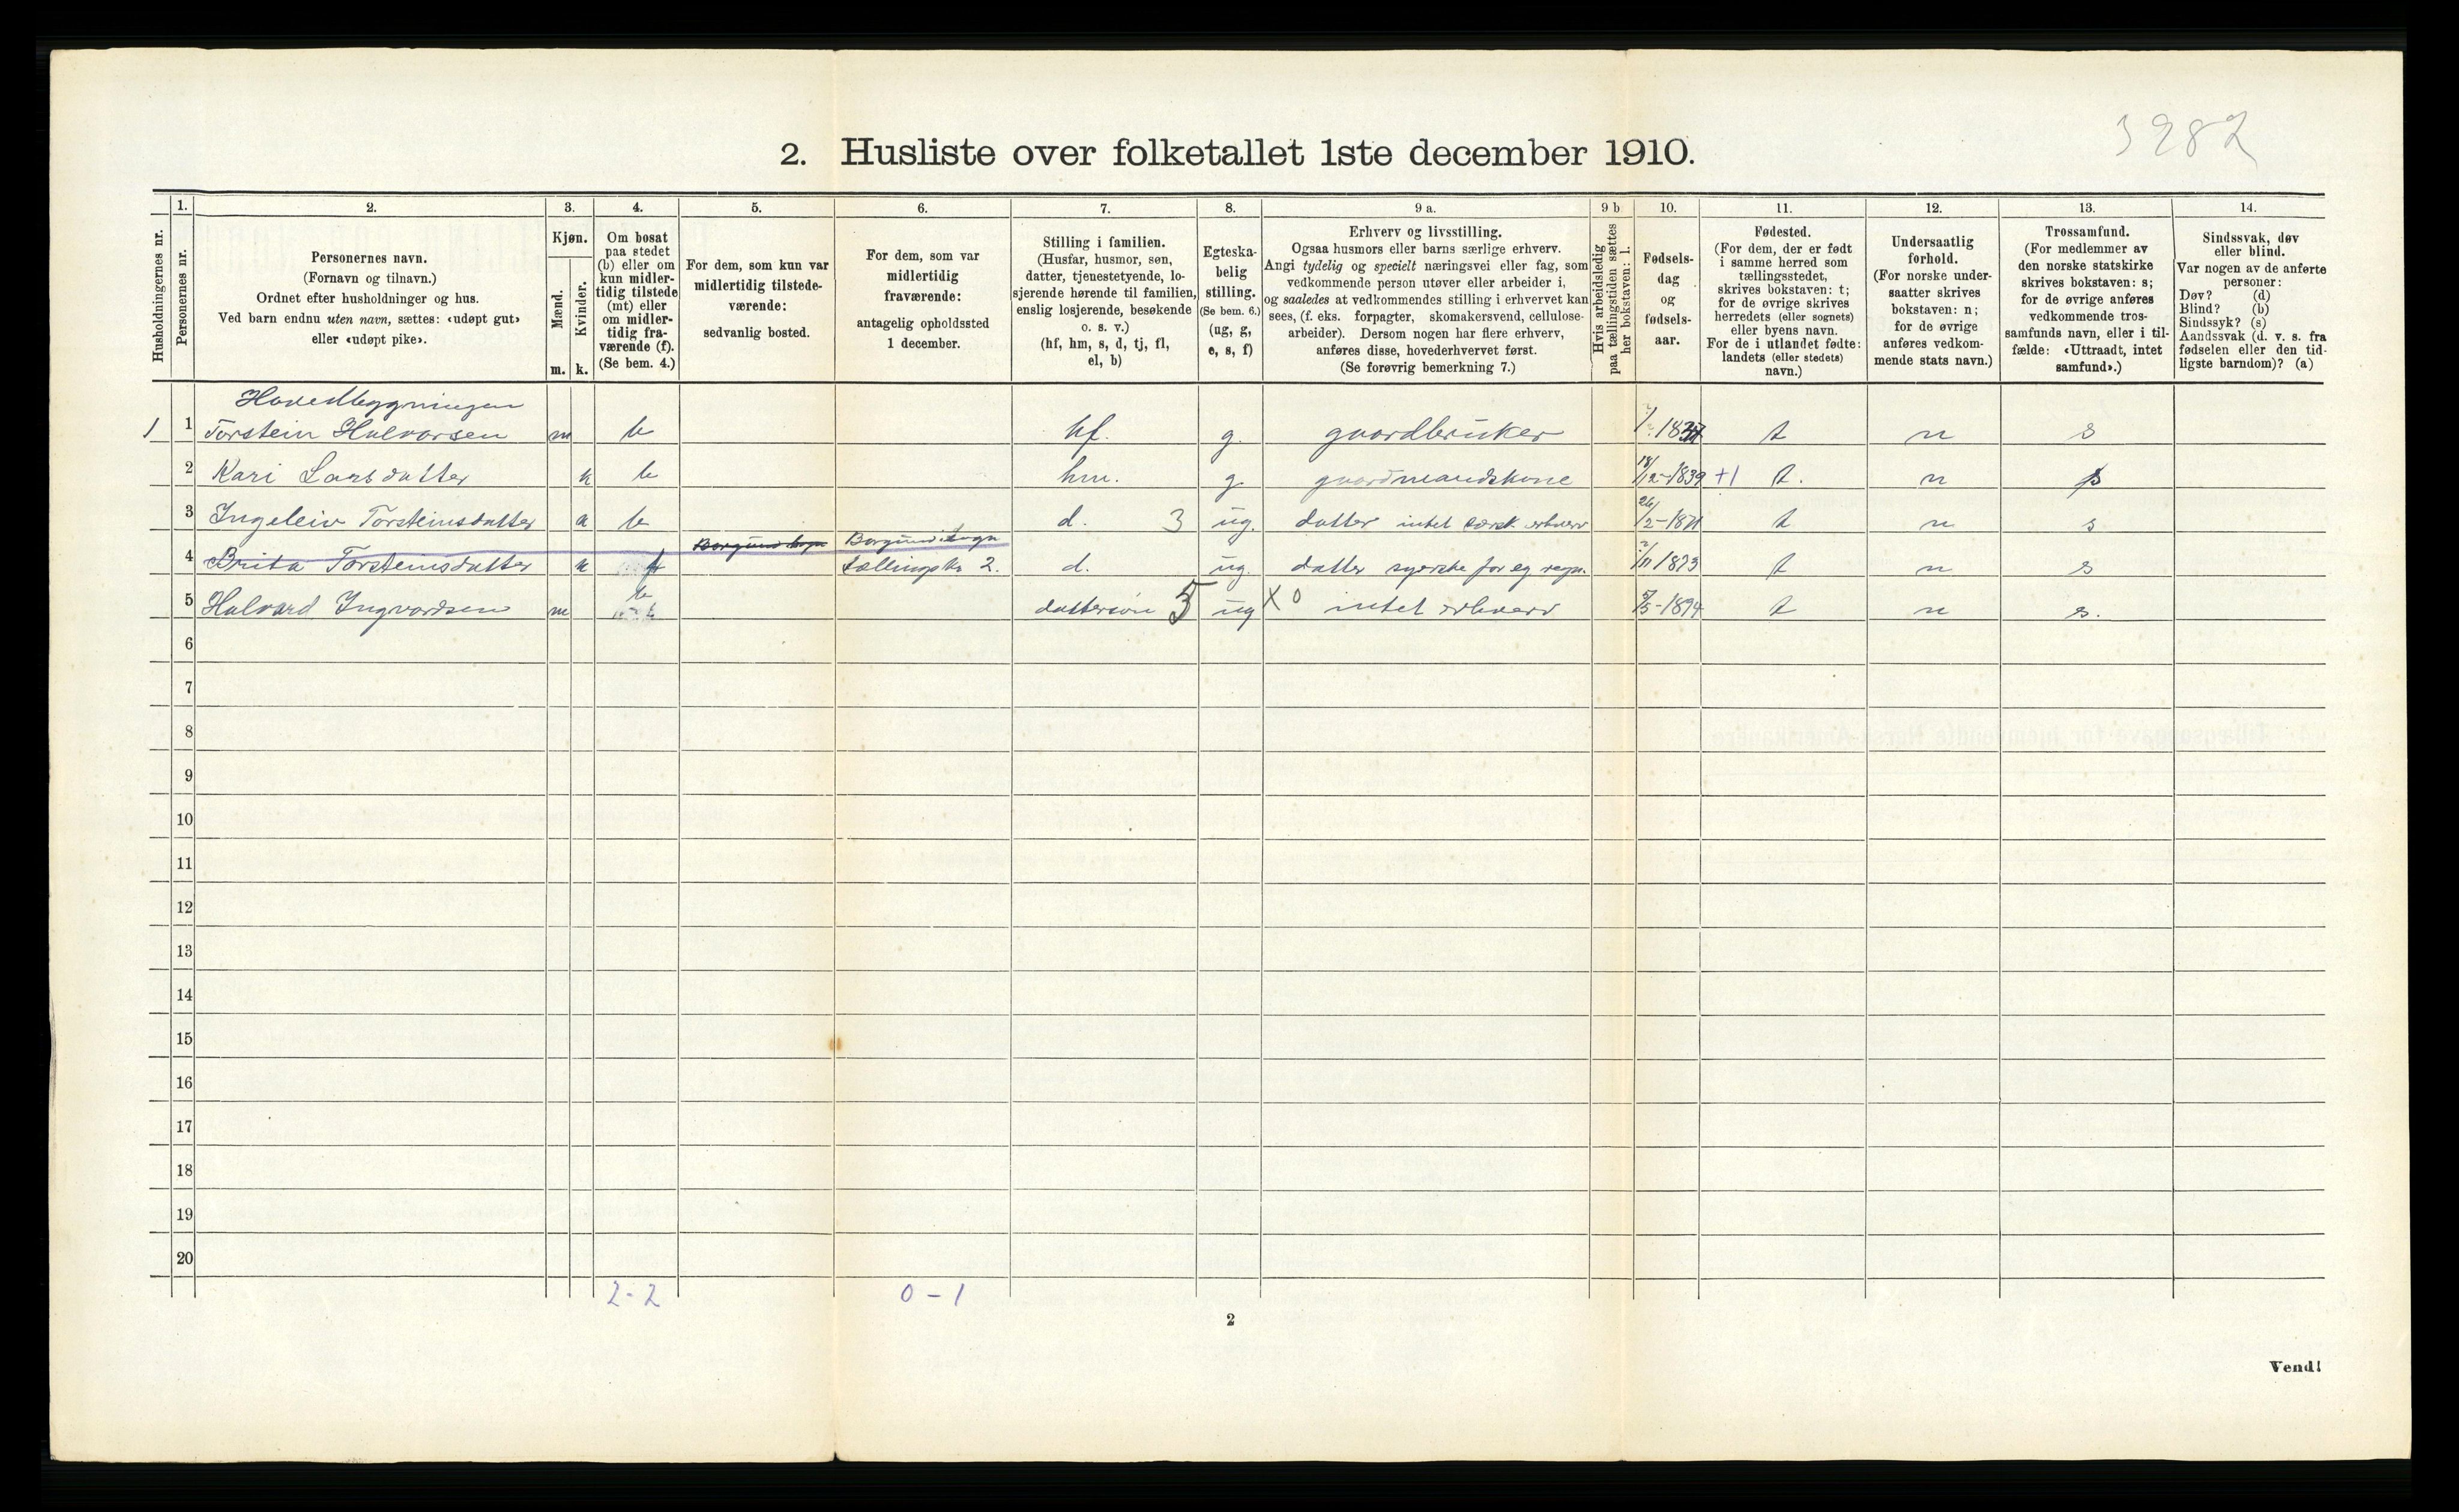 3282
2. Husliste over folketallet 1ste december 1910.
Husholdningernes nr.
1.
Personernes nr.
2.
Personernes navn.
(Fornavn og tilnavn.)
Ordnet efter husholdninger og hus.
Ved barn endnu uten navn, sættes: «udøpt gut»
eller «udøpt pike».
3.
Kjøn.
Mænd.
Kvinder.
m. k.
4.
Om bosat
paa stedet
(b) eller om
kun midler-
tidig tilstede
(mt) eller
om midler-
tidig fra-
værende (f).
(Se bem. 4.)
5.
For dem, som kun var
midlertidig tilstede-
værende:
sedvanlig bosted.
6.
For dem, som var
midlertidig
fraværende:
antagelig opholdssted
1 december.
7.
Stilling i familien.
(Husfar, husmor, søn,
datter, tjenestetyende, lo-
sjerende hørende til familien,
enslig losjerende, besøkende
o. s. v.)
(hf, hm, s, d, tj, fl,
el, b)
8.
Egteska-
belig
stilling.
(Se bem. 6.)
(ug, g,
e, s, f)
9 a.
Erhverv og livsstilling.
Ogsaa husmors eller barns særlige erhverv.
Angi tydelig og specielt næringsvei eller fag, som
vedkommende person utøver eller arbeider i,
og saaledes at vedkommendes stilling i erhvervet kan
sees, (f. eks. forpagter, skomakersvend, cellulose-
arbeider). Dersom nogen har flere erhverv,
anføres disse, hovederhvervet først.
(Se forøvrig bemerkning 7.)
9 b
Hvis arbeidsledig
paa tællingstiden sættes
her bokstaven: l.
10.
Fødsels-
dag
og
fødsels-
aar.
11.
Fødested.
(For dem, der er født
i samme herred som
tællingsstedet,
skrives bokstaven: t;
for de øvrige skrives
herredets (eller sognets)
eller byens navn.
For de i utlandet fødte:
landets (eller stedets)
navn.)
12.
Undersaatlig
forhold.
(For norske under-
saatter skrives
bokstaven: n;
for de øvrige
anføres vedkom-
mende stats navn.)
13.
Trossamfund.
(For medlemmer av
den norske statskirke
skrives bokstaven: s;
for de øvrige anføres
vedkommende tros-
samfunds navn, eller i til-
fælde: «Uttraadt, intet
samfund».)
14.
Sindssvak, døv
eller blind.
Var nogen av de anførte
personer:
Døv? (d)
Blind? (b)
Sindssyk? (s)
Aandssvak (d. v. s. fra
fødselen eller den tid-
ligste barndom)? (a)
Hovedbygningen
1 1 Torstein Halvorsen m b hf. g. gaardbruker t n s
2 Kari Larsdatter k b hm. g. gaardmandskone 18/12-1839 +1 t. n s
3 Ingeleiv Torsteinsdatter k b d. 3 ug. datter intet særsk. erhverv 26/2-1871 t n s
Borgund sogn Borgund sogn
4 Brita Torsteinsdatter k f tællingskr. 2. d. ug. datter syerske for eg regn. 1873 t n s
5 Halvard Ingvardsen m b dattersøn 5 ug X 0 intet erhverv 5/5-1894 t n s.
6
7
8
9
10
11
12
13
14
15
16
17
18
19
20
2-2 0-1
2
Vend!